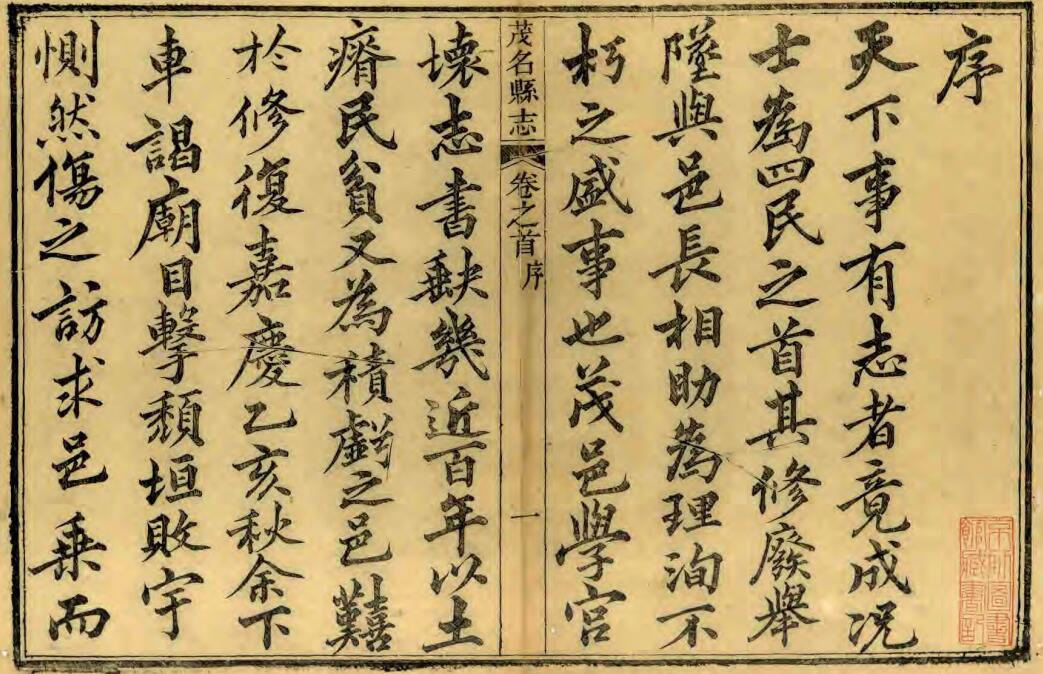 序
天下事有志者竟成况
士為四民之首其修廢舉
墜與邑長相助為理洵不
朽之盛事也茂邑學宮
茂名縣志 卷之首 序 一
壞志書缺幾近百年以土
瘠民貧又為積虧之邑囏
於修復嘉慶乙亥秋余下
車謁廟目擊頹垣敗宇
惻然傷之訪求邑乗而